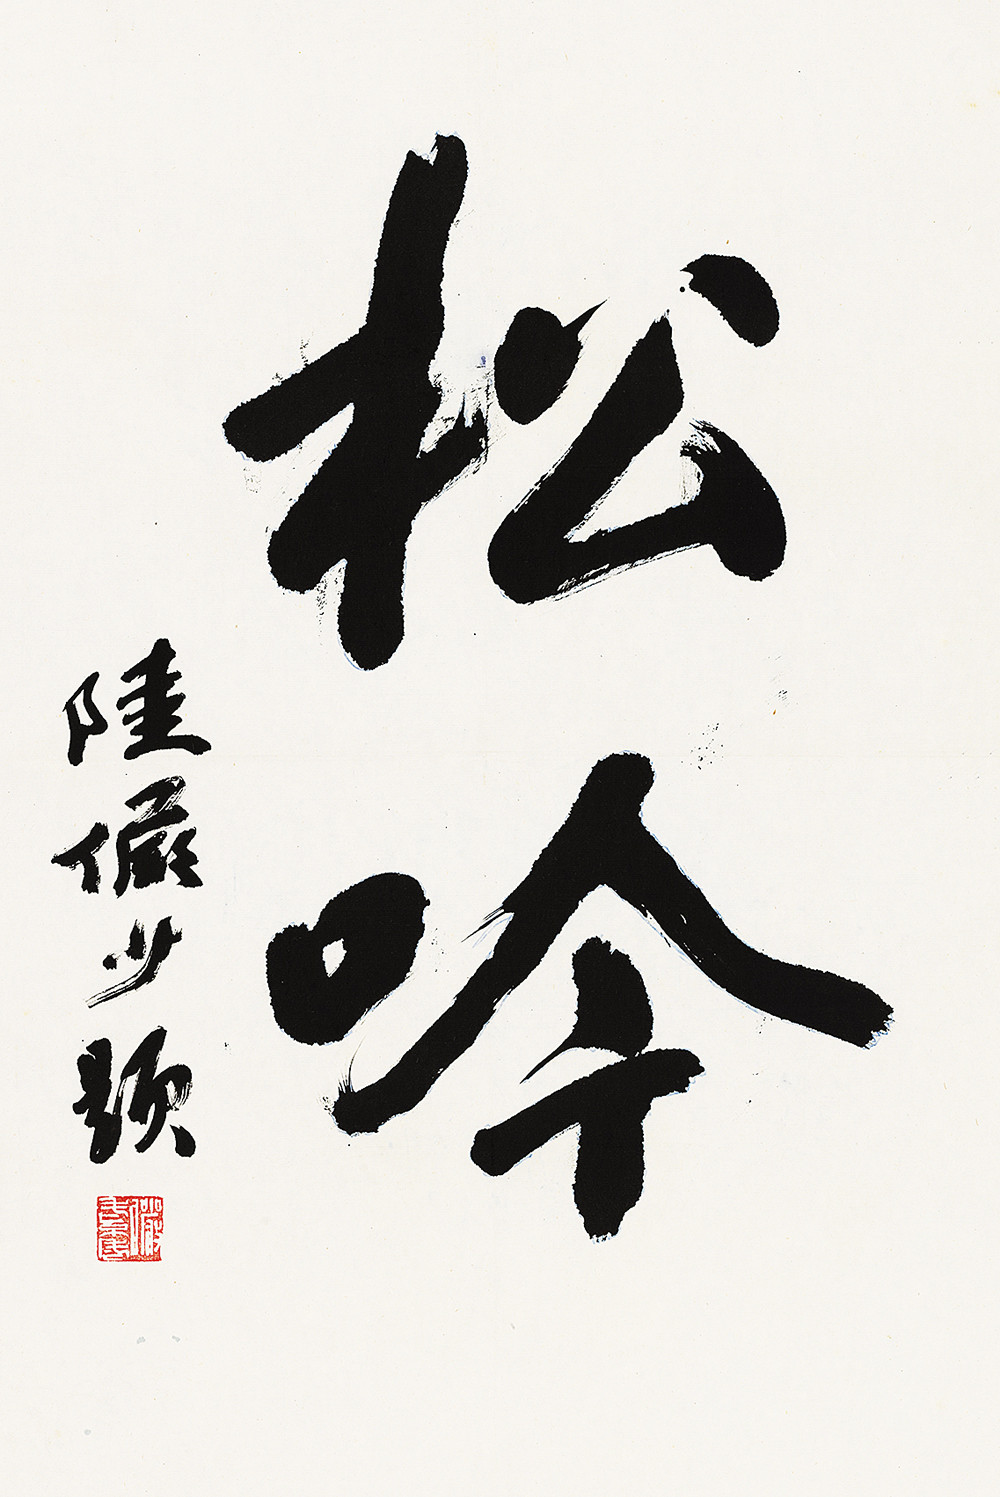 松吟
陸儼少題